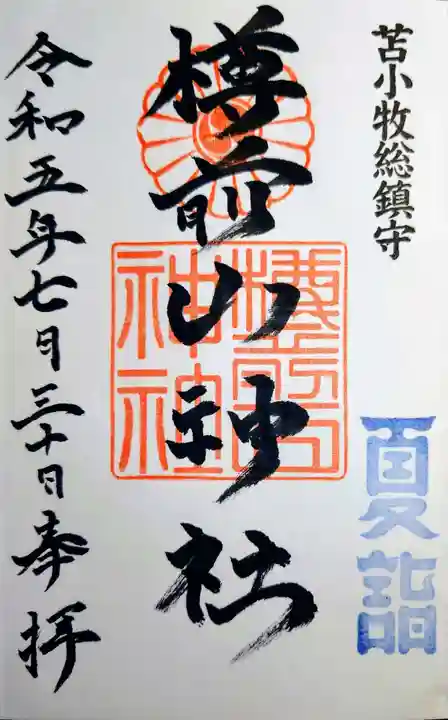 苫小牧総鎮守
夏詣
樽前山神社
樽前山
神社
令和五年七月三十日奉拝